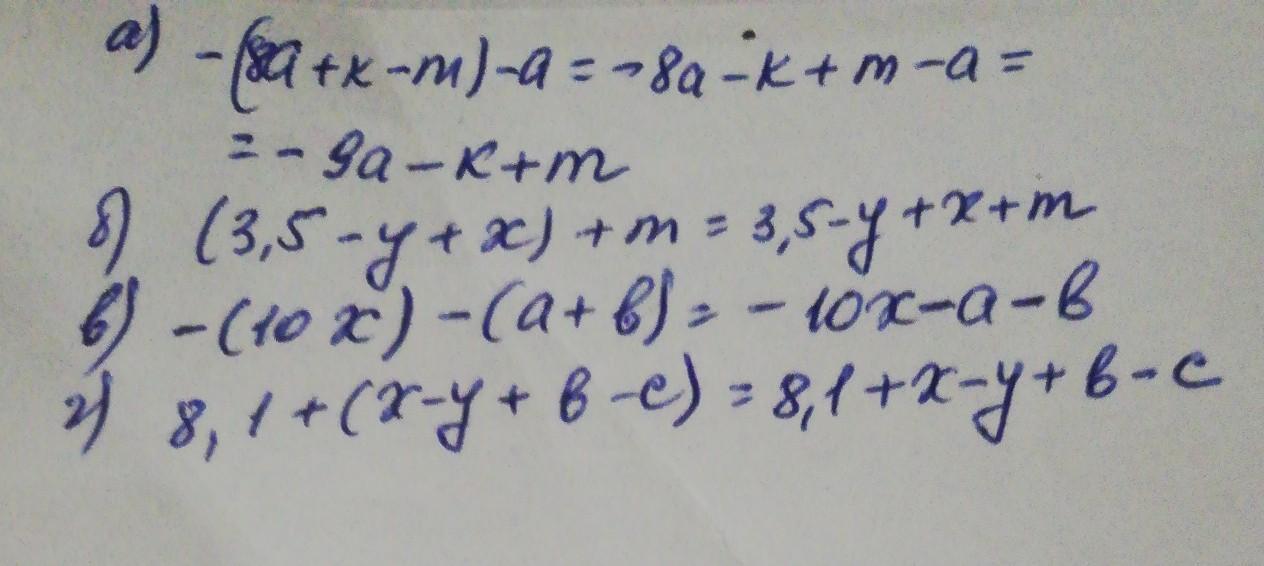 а) -(8a+к-m)-a=-8a-к+m-a=
=-9a-к+m
б) (3,5-y+x)+m=3,5-y+x+m
в) -(10x)-(a+в)=-10x-a-в
г) 8,1+(x-y+в-c)=8,1+x-y+в-c